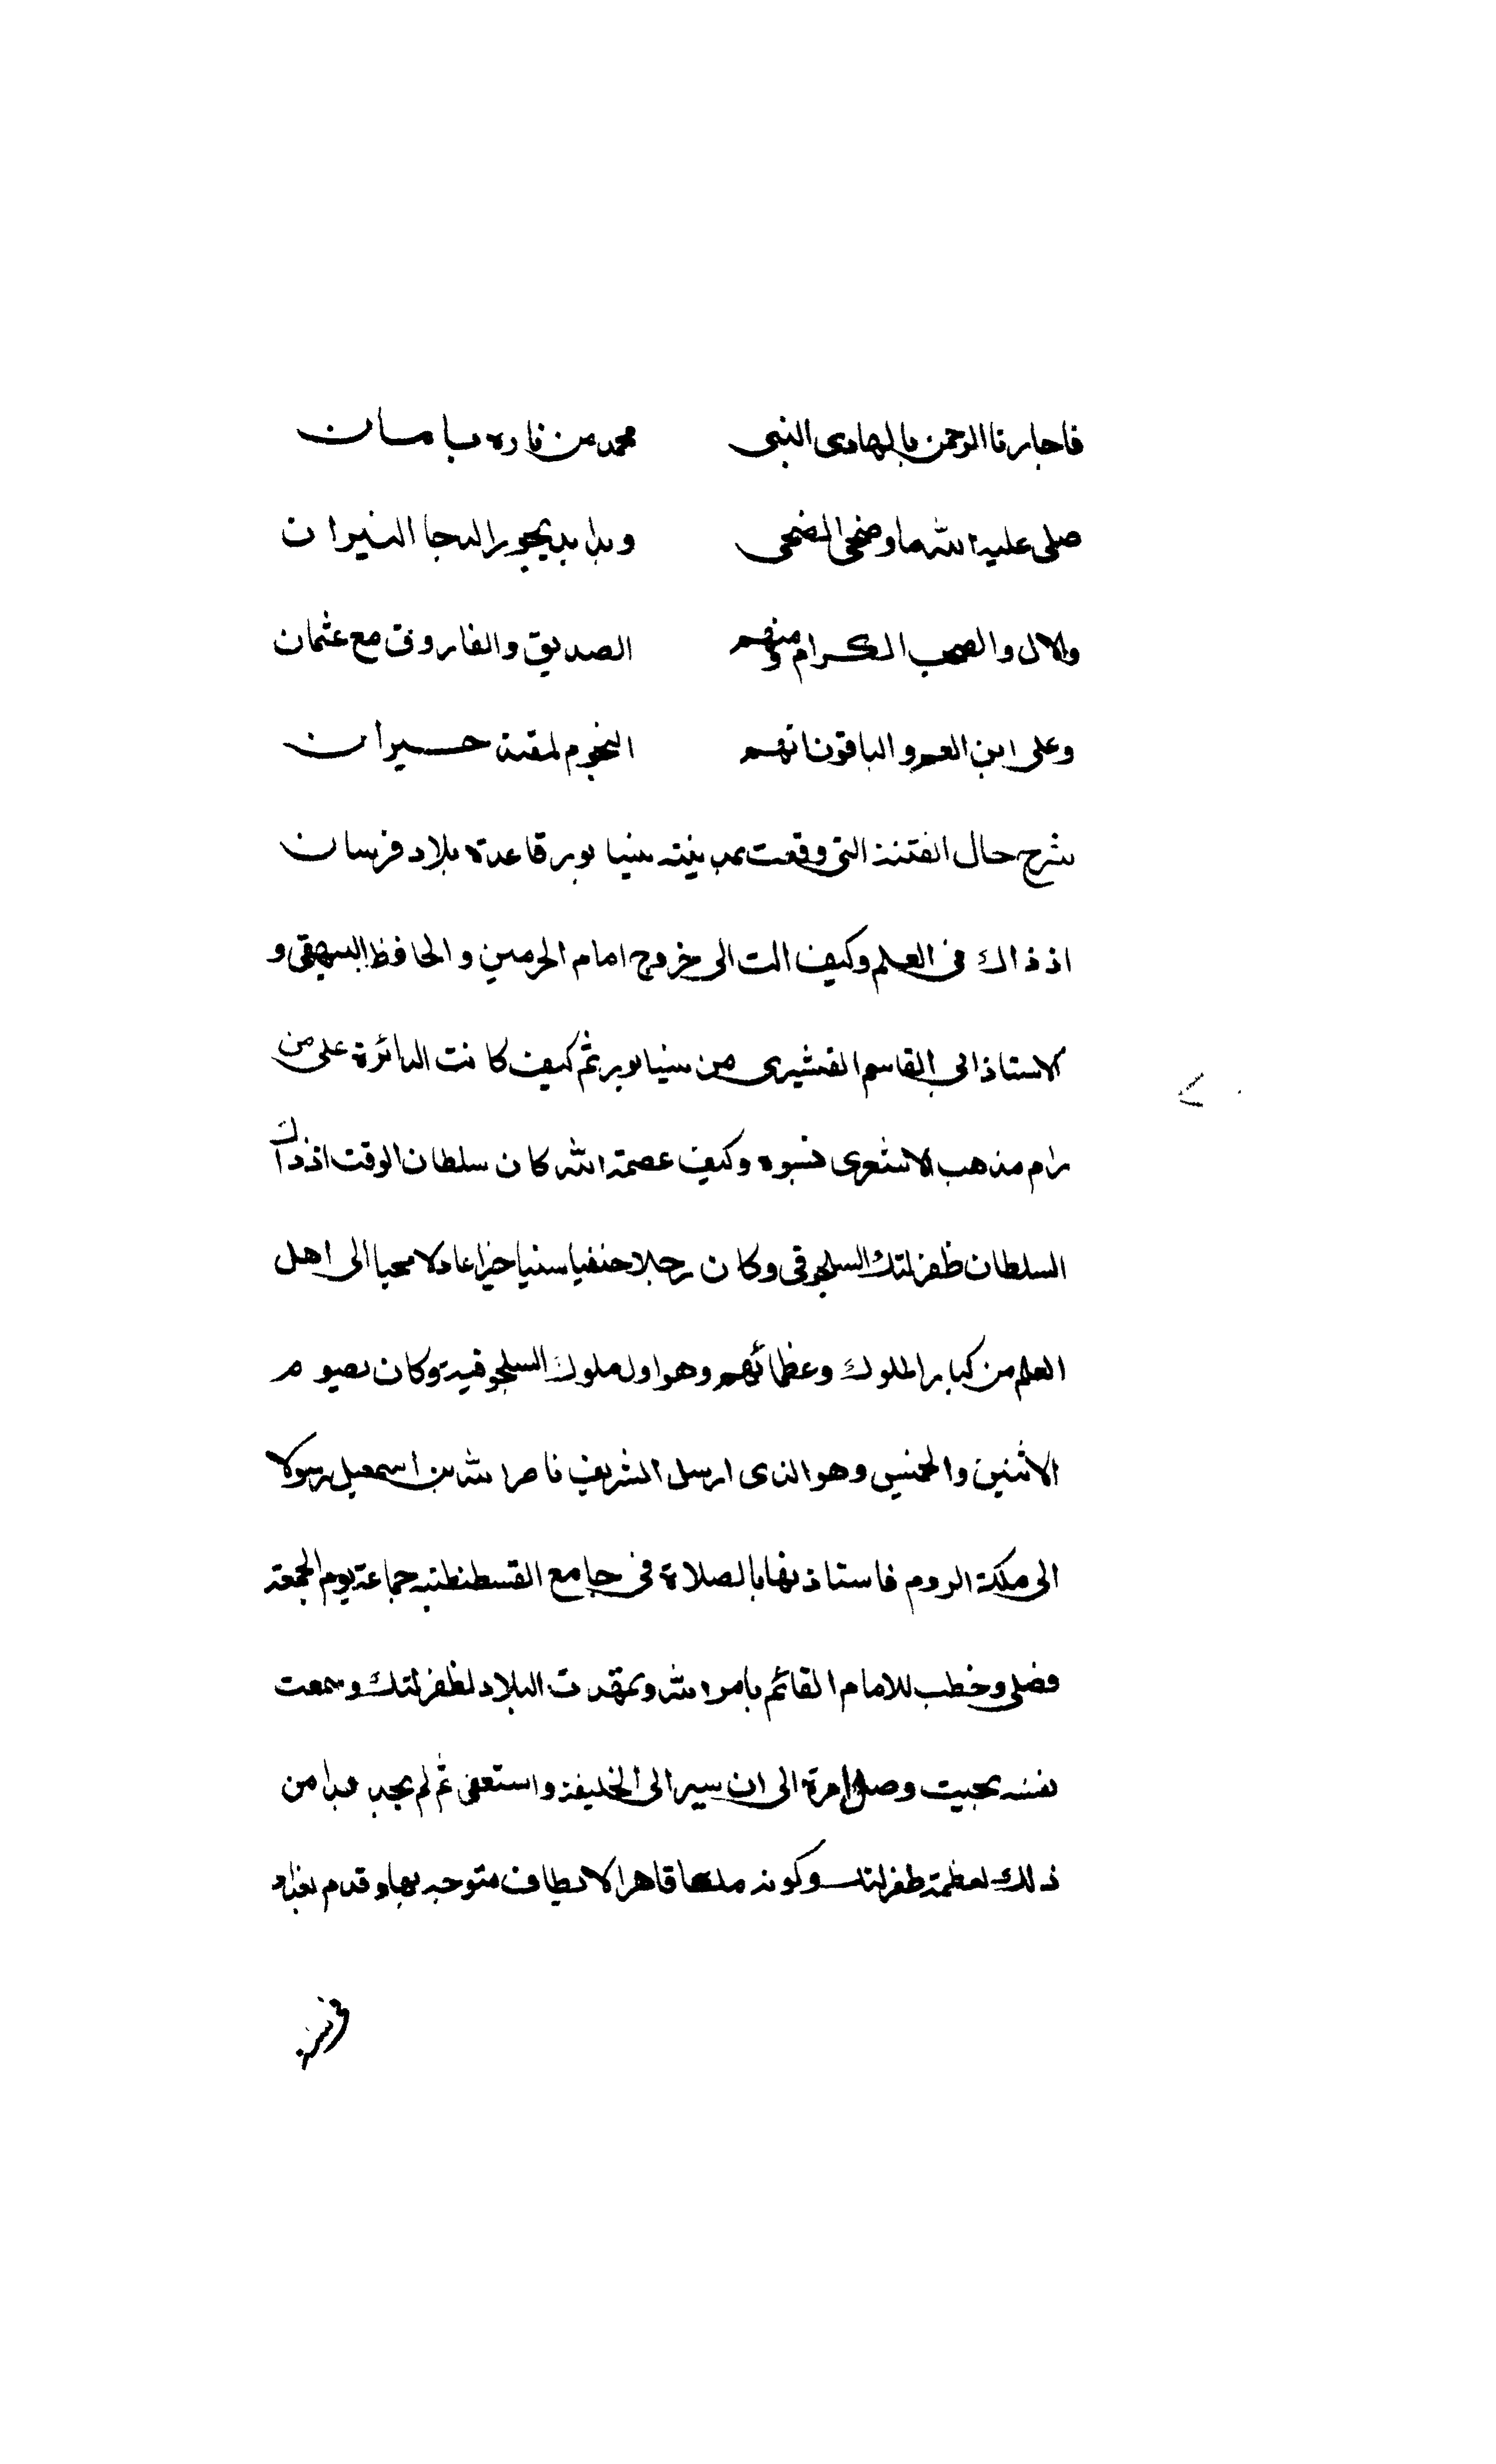 فاجارنا الرحمن بالهادى النبى محمد من ناره بامان
صلى عليه الله ما وضحى الضحى وبدا بديجور الدجا النيران
والال والصحب الكرام ومنهم الصديق والفاروق مع عثمان
وعلى ابن العم والباقون انهم النجوم لمقتد حيران
شرح حال الفتنة التى وقعت بمدينته نيسابور قاعدة بلاد خرسان
اذ ذاك فى العلم وكيف الت الى خروج امام الحرمين والحافظ البيهقى و
الاستاذ ابى القاسم القشيرى من نيسابور ثم كيف كانت الدائرة على من
رام مذهب الاشعرى وكيف عصمة الله كان سلطان الوقت اذ ذاك
السلطان ظغرلتك السلجوقى وكان رجلا حنفيا سنيا خيرا عادلا محبا الى اهل
العلم من كبابر الملوك وعظمائهم وهو اول ملوك السلجوقية وكان يصوم
الاثنين والخميس وهو الذى ارسل الشريف ناصر الله بن اسمعيل رسولا
الى ملكة الروم فاستاذنها بالصلاة فى جامع القسطنطنيه جماعة يوم الجمعة
فصلى وخطب للامام القائم بامر الله وتمهدت البلاد لظغرلتك وسمعت
نفسه بحيث وصل امره الى ان سير الى الخليفة واستعفى ثم لم يجد بدا من
ذلك لعظمة طغرلتك وكونه ملكا قاهرا لا يطاف متوجه بهاو قدم بغداد